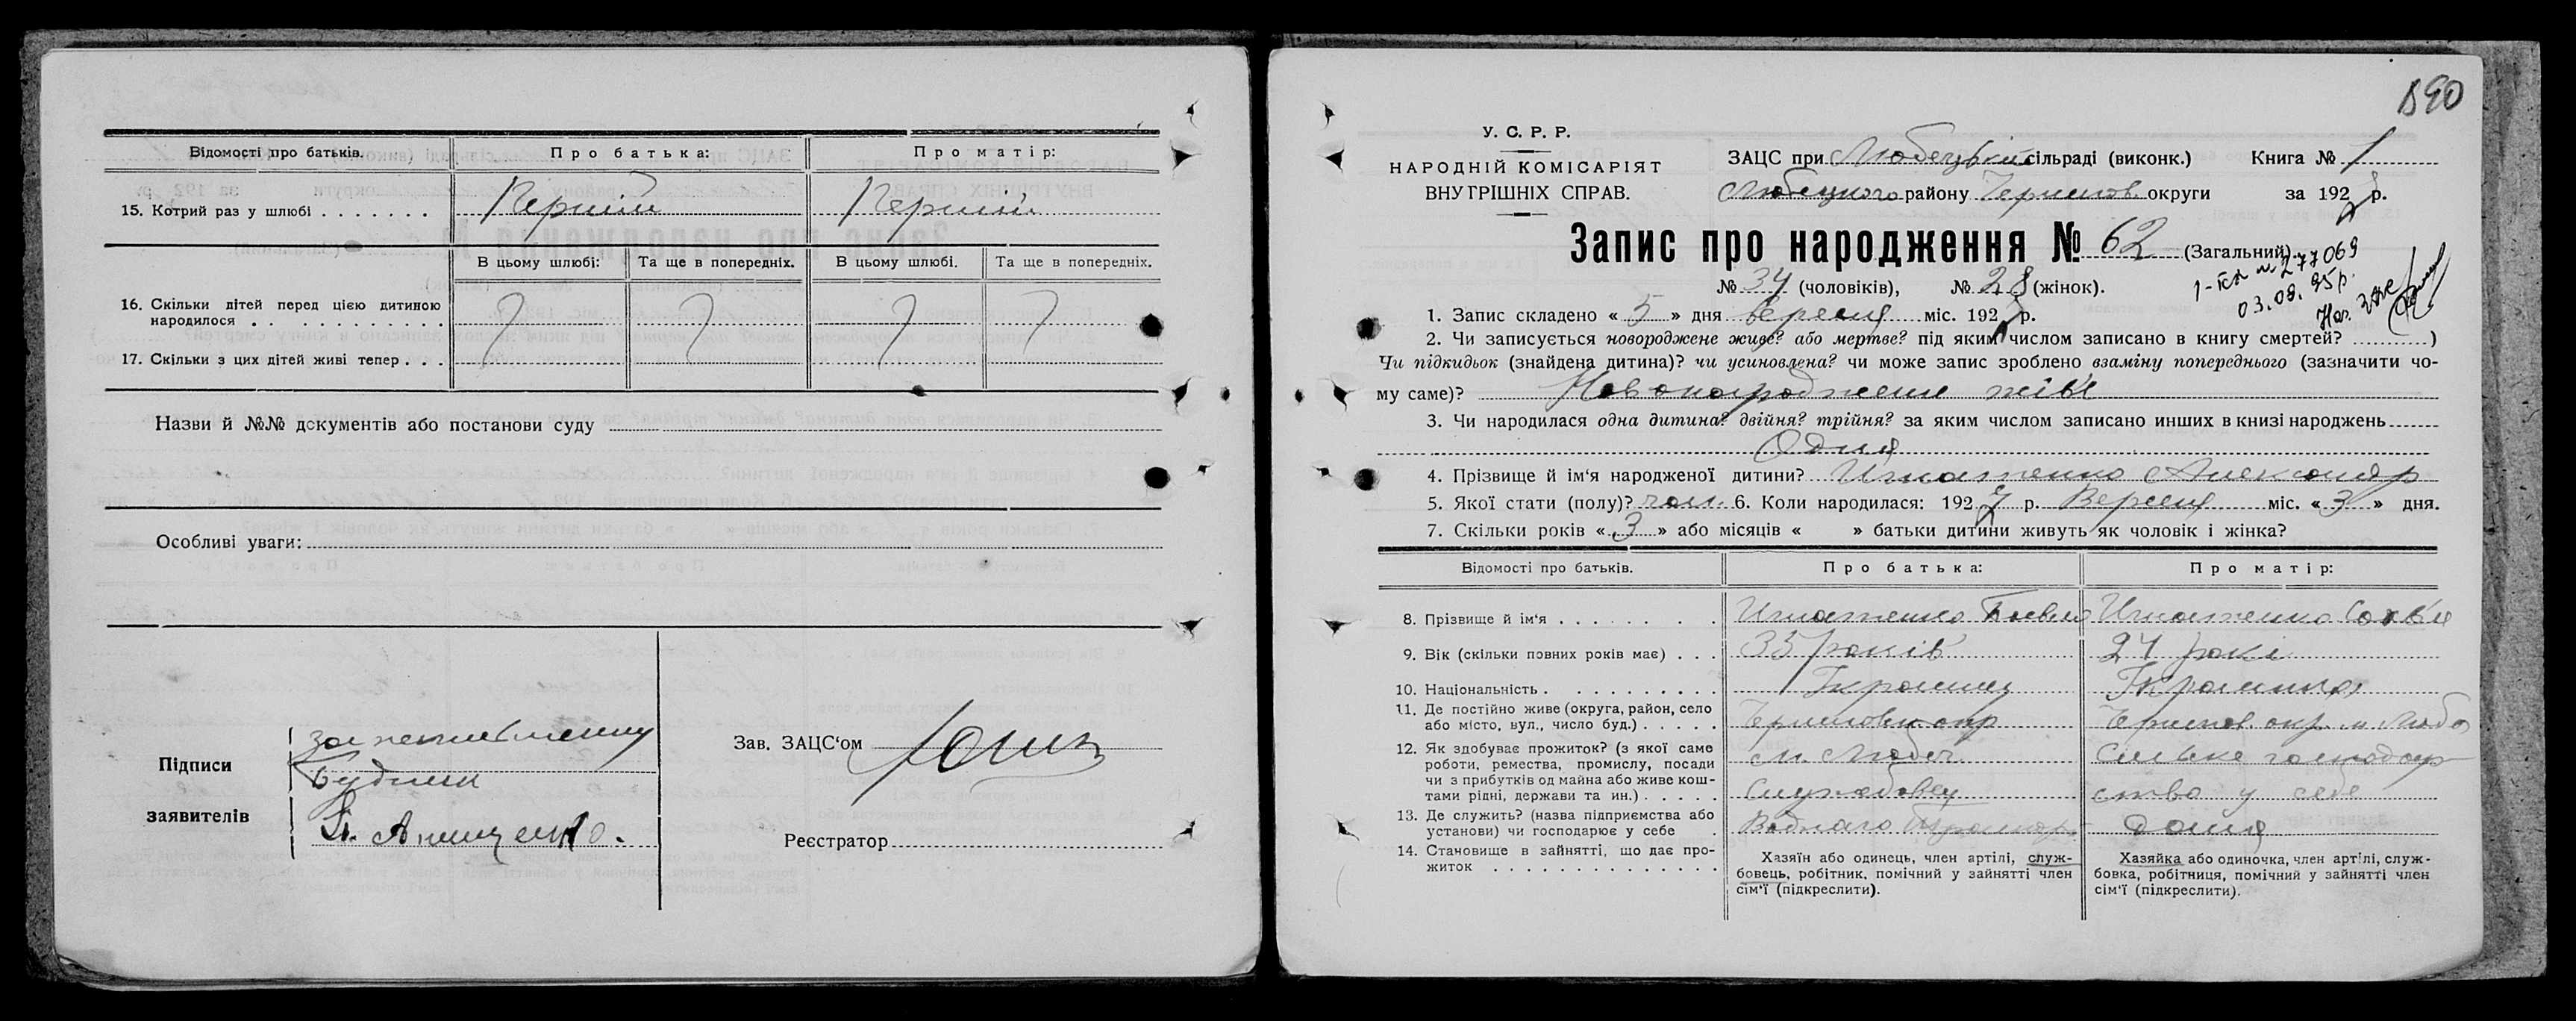 Відомості про батьків. Про батька: Про матір:
15. Котрий раз у шлюбі . . . . . . . Перший Перший
В цьому шлюбі: Та ще в попередніх. В цьому шлюбі. Та ще в попередніх.
16. Скільки дітей перед цією дитиною
народилося . . . . . . . . . . .
17. Скільки з цих дітей живі тепер . . .
Назви й №№ документів або постанови суду
Особливі уваги:
Підписи
заявителів
Анищенко.
Зав. ЗАЦС‘ом
Реєстратор
590
У. С. Р. Р.
НАРОДНІЙ КОМІСАРІЯТ
ВНУТРІШНІХ СПРАВ.
ЗАЦС при Любецькій сільраді (виконк.) Книга № 1
Любецкого району Чернигов. округи за 1927 р.
Запис про народження № 62 (Загальний).
№ 34 (чоловіків), № 28 (жінок).
277069
03.08.95р.
1. Запис складено « 5 » дня вересня міс. 1927 р.
2. Чи записується новороджене живе? або мертве? під яким числом записано в книгу смертей? ............)
Чи підкидьок (знайдена дитина)? чи усиновлена? чи може запис зроблено взаміну попереднього (зазначити чо-
му саме)? Новонароджене живе
3. Чи народилася одна дитина? двійня? трійня? за яким числом записано инших в книзі народжень
Одна
4. Прізвище й ім‘я народженої дитини? Игнатенко Александр
5. Якої стати (полу)? чол. 6. Коли народилася: 1927 р. Вересня міс. « 3 » дня.
7. Скільки років « 3 » або місяців « » батьки дитини живуть як чоловік і жінка?
Відомості про батьків. Про батька: Про матір:
8. Прізвище й ім‘я . . . . . . . . Игнатенко Павло Игнатенко Софья
9. Вік (скільки повних років має) . . . 35 років 24 років
10. Національність . . . . . . . . . . Українец Українка
11. Де постійно живе (округа, район, село
або місто, вул., число буд.) . . . . . Чернигов. окр. Чернигов. окр. м. Любеч
12. Як здобуває прожиток? (з якої саме
роботи, ремества, промислу, посади
чи з прибутків од майна або живе кош-
тами рідні, держави та ин.) . . . . .
м. Любеч Сільске господар-
Службовец ство у себе
13. Де служить? (назва підприємства або
установи) чи господарює у себе .
Воднаго дома
14. Становище в зайнятті, що дає про-
житок . . . . . . . . . . . . . .
Хазяїн або одинець, член артілі, служ-
бовець, робітник, помічний у зайнятті член
сім‘ї (підкреслити).
Хазяйка або одиночка, член артілі, служ-
бовка, робітниця, помічний у зайнятті член
сім‘ї (підкреслити).